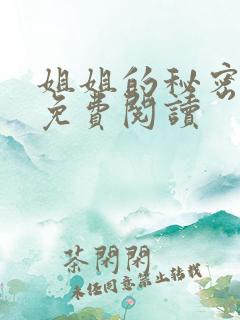 姐姐的秘密
免費閱讀
茶閑閑
未經同意禁止轉載